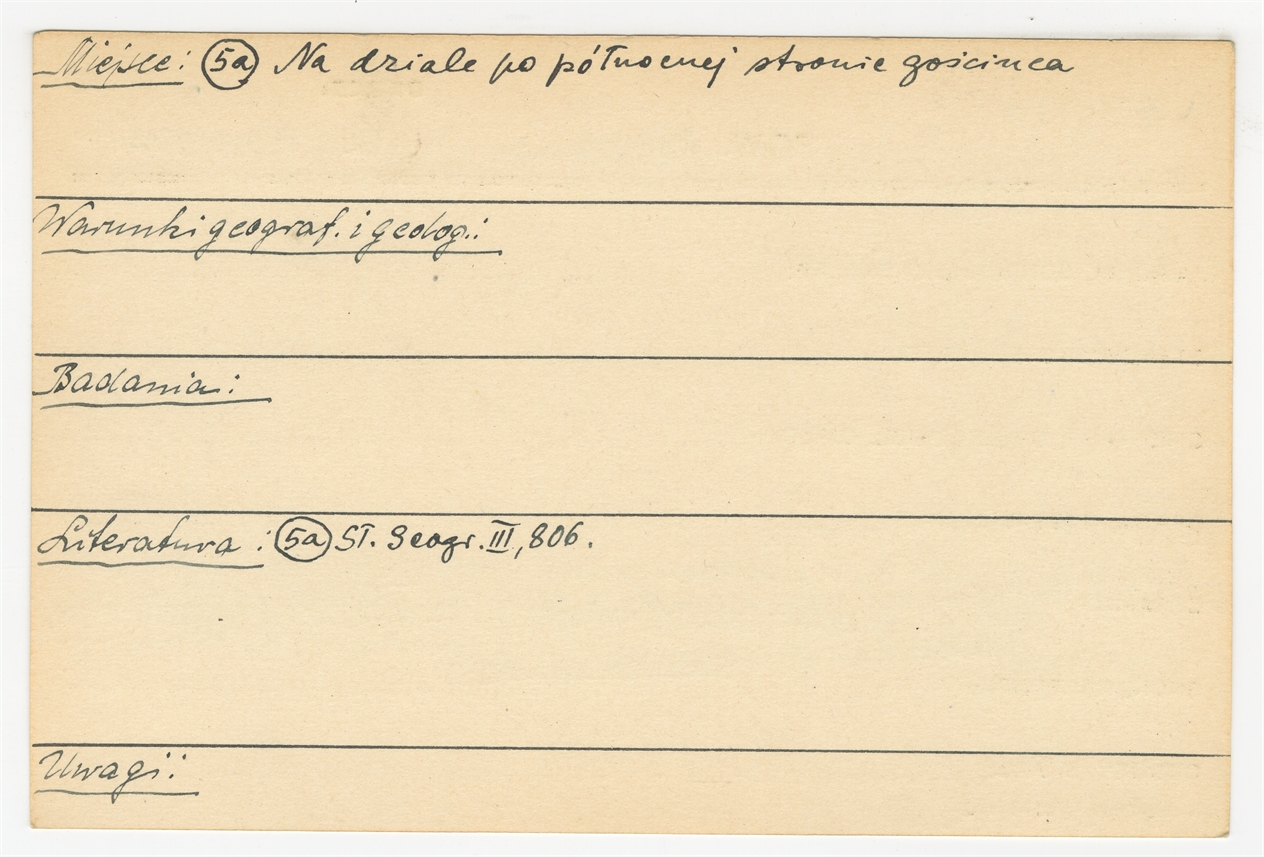 Miejsce: 5a Na dziale po północnej stronie gościńca
Warunki geograf. i geolog.:
Badania:
Literatura: 5a Sł. Geogr. III, 806.
Uwagi: